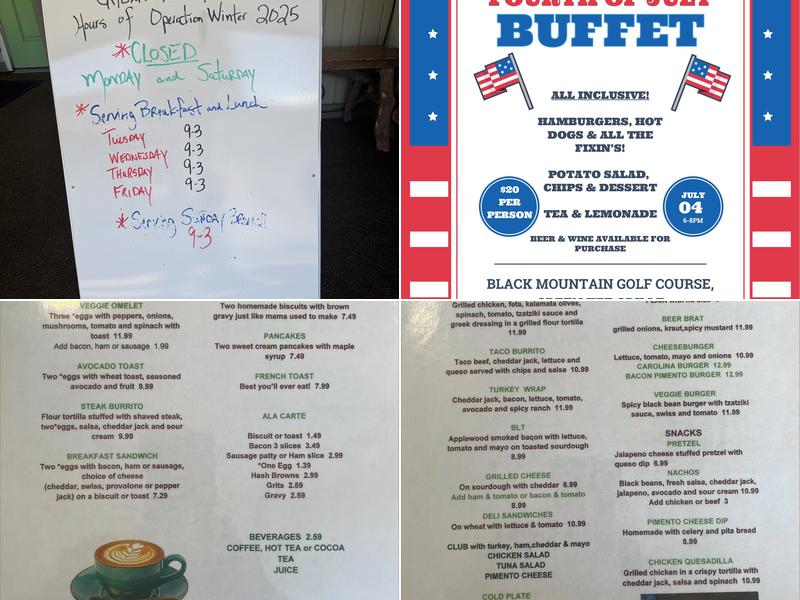 Hours of Operation Winter 2025
*CLOSED
Monday and Saturday
*Serving Breakfast and Lunch
Tuesday 9-3
Wednesday 9-3
Thursday 9-3
Friday 9-3
*Serving Sunday Brunch
9-3
FOURTH OF JULY
BUFFET
ALL INCLUSIVE!
HAMBURGERS, HOT
DOGS & ALL THE
FIXIN'S!
POTATO SALAD,
CHIPS & DESSERT
TEA & LEMONADE
$20
PER
PERSON
JULY
04
6-8PM
BEER & WINE AVAILABLE FOR
PURCHASE
BLACK MOUNTAIN GOLF COURSE,
VEGGIE OMELET
Three *eggs with peppers, onions,
mushrooms, tomato and spinach with
toast 11.99
Add bacon, ham or sausage 1.99
AVOCADO TOAST
Two *eggs with wheat toast, seasoned
avocado and fruit 9.99
STEAK BURRITO
Flour tortilla stuffed with shaved steak,
two*eggs, salsa, cheddar jack and sour
cream 9.99
BREAKFAST SANDWICH
Two *eggs with bacon, ham or sausage,
choice of cheese
(cheddar, swiss, provolone or pepper
jack) on a biscuit or toast 7.29
Two homemade biscuits with brown
gravy just like mama used to make 7.49
PANCAKES
Two sweet cream pancakes with maple
syrup 7.49
FRENCH TOAST
Best you'll ever eat! 7.99
ALA CARTE
Biscuit or toast 1.49
Bacon 3 slices 3.49
Sausage patty or Ham slice 2.99
*One Egg 1.39
Hash Browns 2.99
Grits 2.59
Gravy 2.59
BEVERAGES 2.59
COFFEE, HOT TEA or COCOA
TEA
JUICE
Grilled chicken, feta, kalamata olives,
spinach, tomato, tzatziki sauce and
greek dressing in a grilled flour tortilla
11.99
TACO BURRITO
Taco beef, cheddar jack, lettuce and
queso served with chips and salsa 10.99
TURKEY WRAP
Cheddar jack, bacon, lettuce, tomato,
avocado and spicy ranch 11.99
BLT
Applewood smoked bacon with lettuce,
tomato and mayo on toasted sourdough
8.99
GRILLED CHEESE
On sourdough with cheddar 6.99
Add ham & tomato or bacon & tomato
8.99
DELI SANDWICHES
On wheat with lettuce & tomato 10.99
CLUB with turkey, ham,cheddar & mayo
CHICKEN SALAD
TUNA SALAD
PIMENTO CHEESE
COLD PLATE
BEER BRAT
grilled onions, kraut,spicy mustard 11.99
CHEESEBURGER
Lettuce, tomato, mayo and onions 10.99
CAROLINA BURGER 12.99
BACON PIMENTO BURGER 12.99
VEGGIE BURGER
Spicy black bean burger with tzatziki
sauce, swiss and tomato 11.99
SNACKS
PRETZEL
Jalapeno cheese stuffed pretzel with
queso dip 6.99
NACHOS
Black beans, fresh salsa, cheddar jack,
jalapeno, avocado and sour cream 10.99
Add chicken or beef 3
PIMENTO CHEESE DIP
Homemade with celery and pita bread
8.99
CHICKEN QUESADILLA
Grilled chicken in a crispy tortilla with
cheddar jack, salsa and spinach 10.99